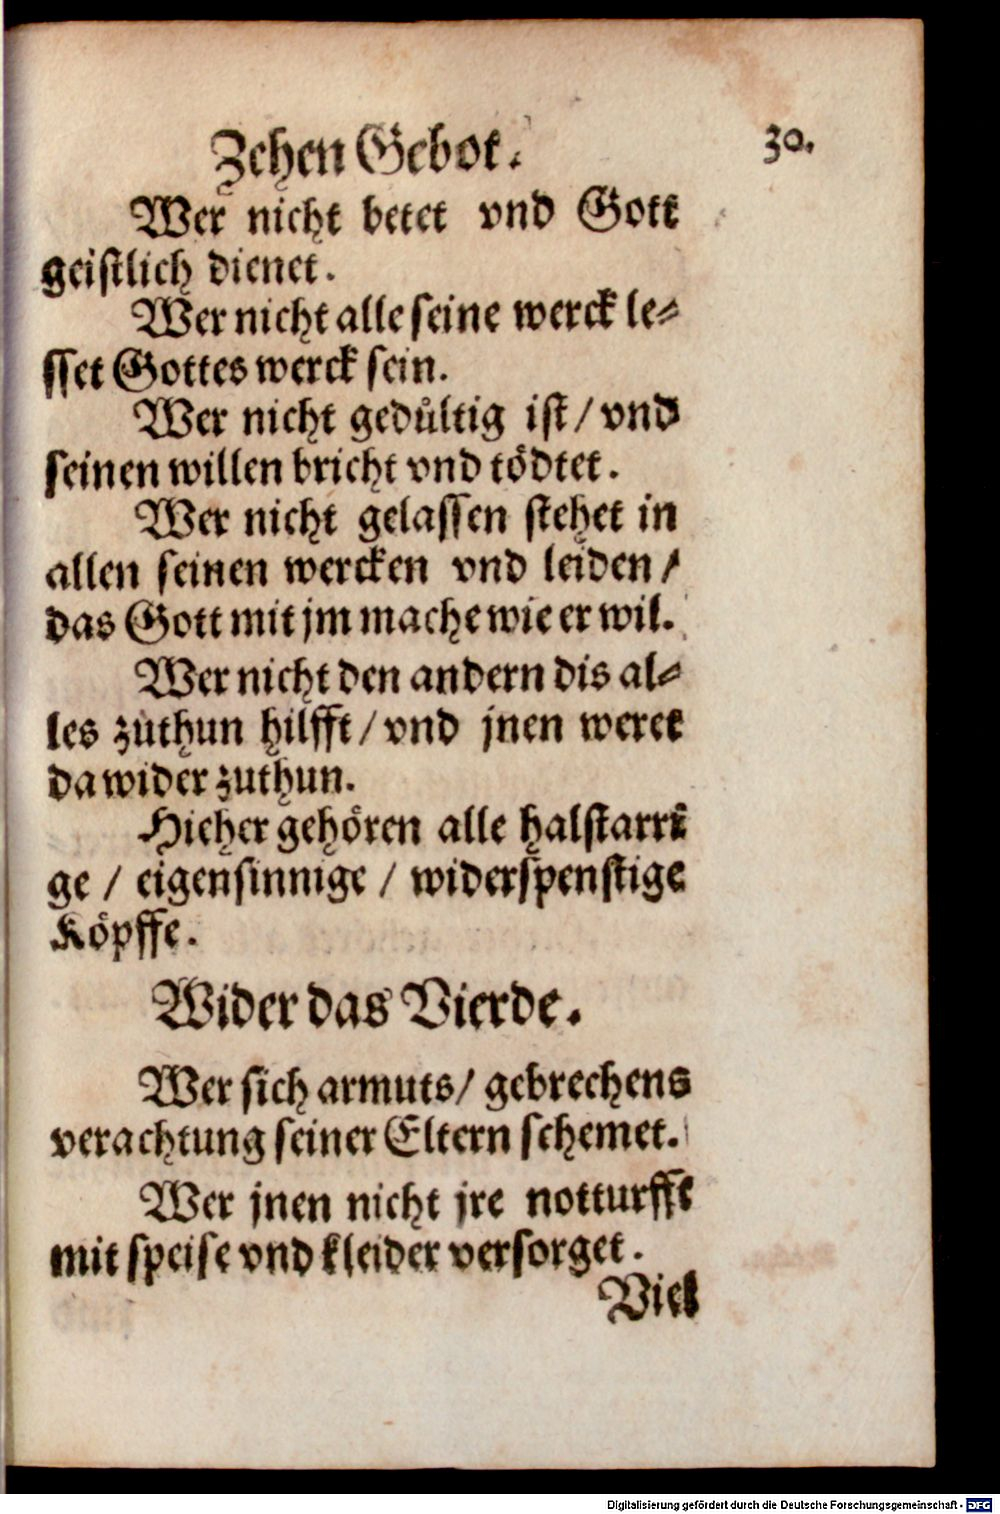 Zehen Gebot. 30.
Wer nicht betet vnd Gott
geistlich dienet.
Wer nicht alle seine werck le⸗
sset Gottes werck sein.
Wer nicht gedůltig ist / vnd
seinen willen bricht vnd tödtet.
Wer nicht gelassen stehet in
allen seinen wercken vnd leiden /
das Gott mit jm mache wie er wil.
Wer nicht den andern dis al⸗
les zuthun hilfft / vnd jnen weret
da wider zuthun.
Hieher gehören alle halstarri
ge / eigensinnige / widerspenstige
Köpffe.
Wider das Vierde.
Wer sich armuts / gebrechens
verachtung seiner Eltern schemet.
Wer jnen nicht jre notturfft
mit speise vnd kleider versorget.
Viel
Digitalisierung gefördert durch die Deutsche Forschungsgemeinschaft - DFG